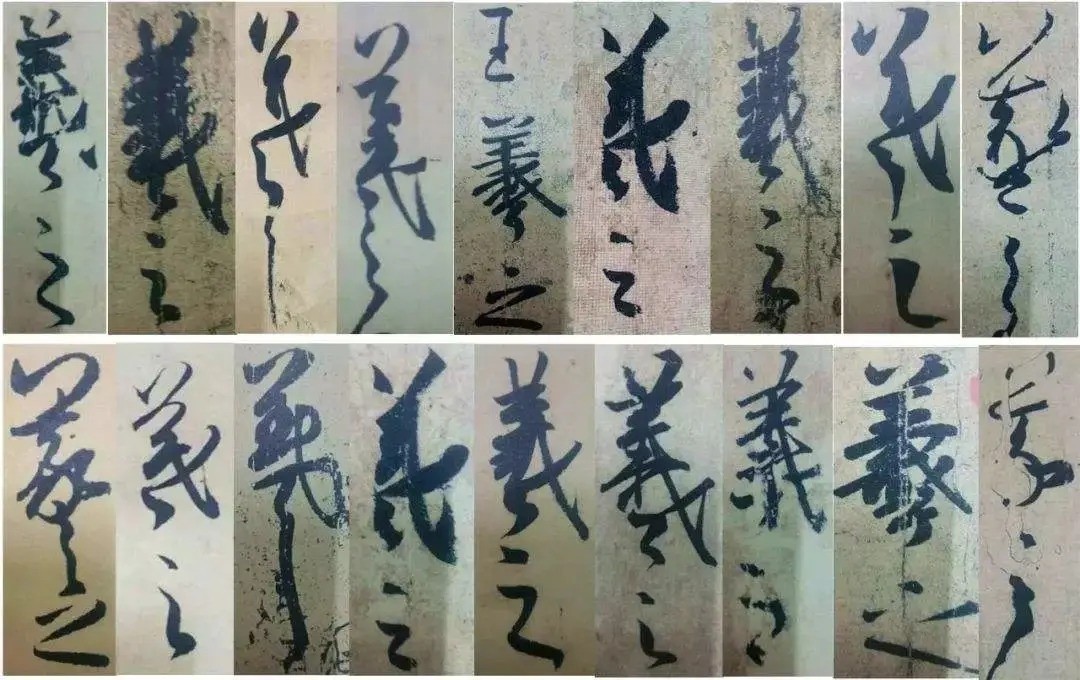 羲之 羲之 羲之 羲之 王羲之 羲之 羲之 羲之 羲之
羲之 羲之 羲之 羲之 羲之 羲之 羲之 羲之 羲之